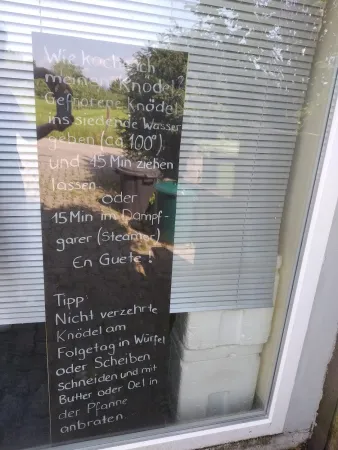 Wie koche ich
meinen Knödel?
Gefrorene Knödel
ins siedende Wasser
geben (ca. 100°)
und 15 Min ziehen
lassen
oder
15 Min im Dampf-
garer (Steamer)
En Guete!
Tipp:
Nicht verzehrte
Knödel am
Folgetag in Würfel
oder Scheiben
schneiden und mit
Butter oder Oel in
der Pfanne
anbraten